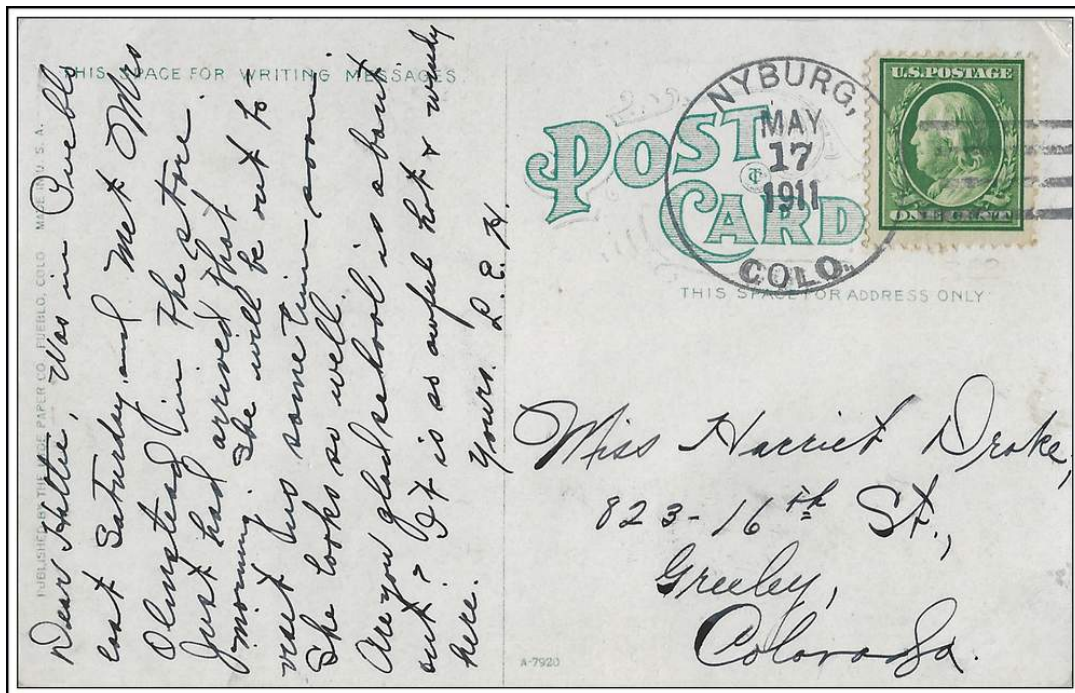 THIS SPACE FOR WRITING MESSAGES.
PUBLISHED BY THE PAPER CO. PUEBLO, COLO MADE IN U. S. A.
Dear Hattie, Was in Pueblo
last Saturday, and met Mrs
Olmstead in the store.
Just had arrived that
morning. She will be out to
visit us some time soon.
She looks so well.
Are you glad school is about
out? It is awful hot & windy
here. Yours. L. E. H.
POST CARD
NYBURG,
MAY
17
1911
COLO.
U.S. POSTAGE
ONE CENT
THIS SPACE FOR ADDRESS ONLY
Miss Harriet Drake,
823-16th St.,
Greeley,
Colorado.
A-7920